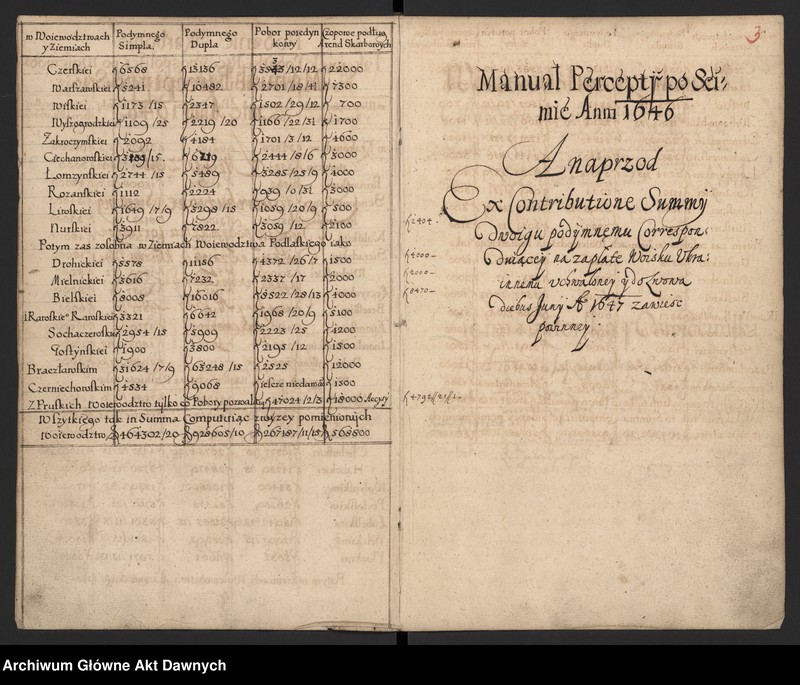 w Woiewodztwach y Ziemiach | Podymnego Simpla. | Podymnego Dupla | Pobor poiedynkowy | Czopowe podług Arend Skarbowych
Czerskiei | 6568 | 13136 | /12/12 | 22000
Warszawskiei | 5241 | 10482 | 2701/18/4½ | 7300
Wiskiei | 1173/15 | 2347 | 1502/29/12 | 700
Wyszogrodzkiei | 1109/25 | 2219/20 | 1166/22/3½ | 1700
Zakroczymskiei | 2092 | 4184 | 1701/3/12 | 4600
Ciechanowskiei | /15. | | 2444/8/6 | 3000
Łomzynskiei | 2744/15 | 5489 | 3285/25/9 | 4000
Rozanskiei | 1112 | 2224 | 939/0/3½ | 3000
Liwskiei | 1649/7/9 | 3298/15 | 1059/20/9 | 500
Nurskiei | 3911 | 7822 | 3059/12 | 2100
Potym zas zosobna w Ziemiach Woiewodztwa Podlaskiego iako
Drohickiei | 5578 | 11156 | 4372/26/7 | 1500
Mielnickiei | 3616 | 7232 | 2337/17 | 2000
Bielskiei | 8008 | 16016 | 8522/28/13 | 4000
Rawskiei | 3321 | 6642 | 1968/20/9 | 5100
Sochaczewskiei | 2954/15 | 5909 | 2223/25 | 4200
Gostynskiei | 1900 | 3800 | 2195/12 | 1500
Bracztawskim | 31624/7/9 | 63248/15 | 2525 | 12000
Czerniechowskim | 4534 | 9068 | ieszcze niedawał | 1500
Z Pruskich Woiewodztw tylko co Pobory pozwalaią 47024/2/3 | 18000
Wszytkiego tak in Summa Computuiąc zwyzey pomienionych
Woiewodztw | 464302/20 | 928605/10 | 267187/11/15 | 568800
3
Manuał Percepty po Sei:
mie Anni 1646
A naprzod
Ex Contributione Summy
dwoigu podymnemu Correspon:
duiącey na zapłatę Woisku Ukra:
innemu uchwaloney y do Lwowa
diebus Juny A° 1647 zawiesc
powinney.
2404
4000
2000
8470
Archiwum Główne Akt Dawnych